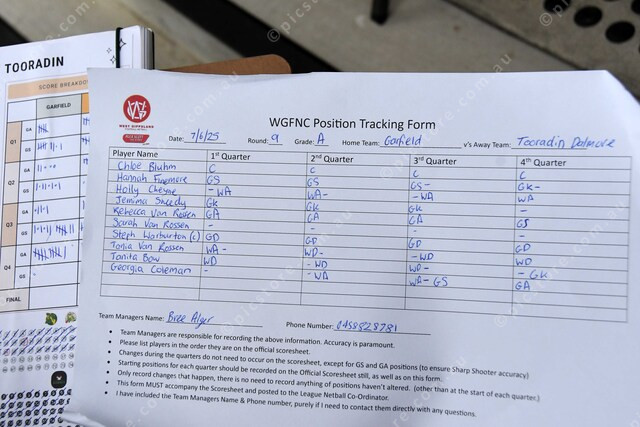 TOORADIN
SCORE BREAKDOWN
GARFIELD
Q1 GA
GS
Q2 GA
GS
Q3 GA
GS
Q4 GA
GS
FINAL
WEST GIPPSLAND
WGFNC Position Tracking Form
Date: 7/6/25 Round: 9 Grade: A Home Team: Garfield v's Away Team: Tooradin Dalmore
Player Name 1st Quarter 2nd Quarter 3rd Quarter 4th Quarter
Chloe Bluhm C C C C
Hannah Finemore GS GS GS - GK -
Holly Cheyne - WA WA - - WA WA
Jemima Sheedy GK GK GK -
Rebecca Van Rossen GA GA GA GS
Sarah Van Rossen - - - -
Steph Warburton (c) GD GD GD GD
Tania Van Rossen WA - WD - - WD WD
Tanita Bow WD - WD WD - - GK
Georgia Coleman - - WA WA - GS GA
Team Managers Name: Bree Alger Phone Number: 0458828781
• Team Managers are responsible for recording the above information. Accuracy is paramount.
• Please list players in the order they are on the official scoresheet.
• Changes during the quarters do not need to occur on the scoresheet, except for GS and GA positions (to ensure Sharp Shooter accuracy)
• Starting positions for each quarter should be recorded on the Official Scoresheet still, as well as on this form.
• Only record changes that happen, there is no need to record anything of positions haven't altered. (other than at the start of each quarter.)
• This form MUST accompany the Scoresheet and posted to the League Netball Co-Ordinator.
• I have included the Team Managers Name & Phone number, purely if I need to contact them directly with any questions.